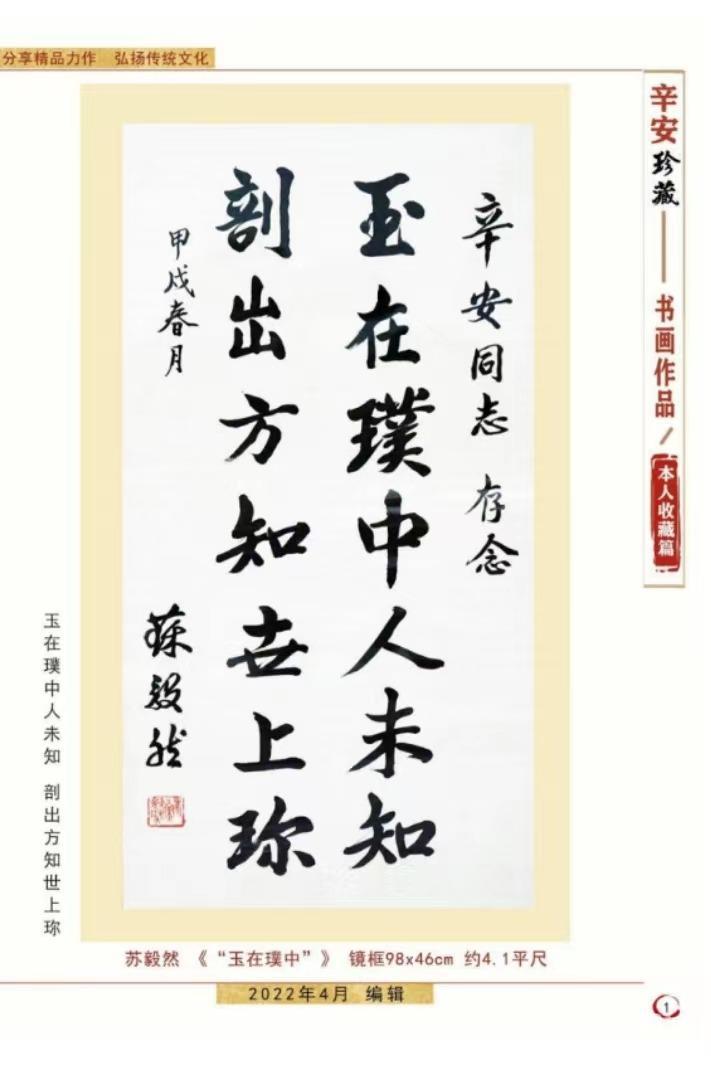 分享精品力作 弘扬传统文化
辛安珍藏——书画作品/本人收藏篇
辛安同志 存念
玉在璞中人未知
剖出方知世上珎
甲戌春月
蘇毅然
玉在璞中人未知 剖出方知世上珎
苏毅然 《“玉在璞中”》 镜框98x46cm 约4.1平尺
2022年4月 编辑
1